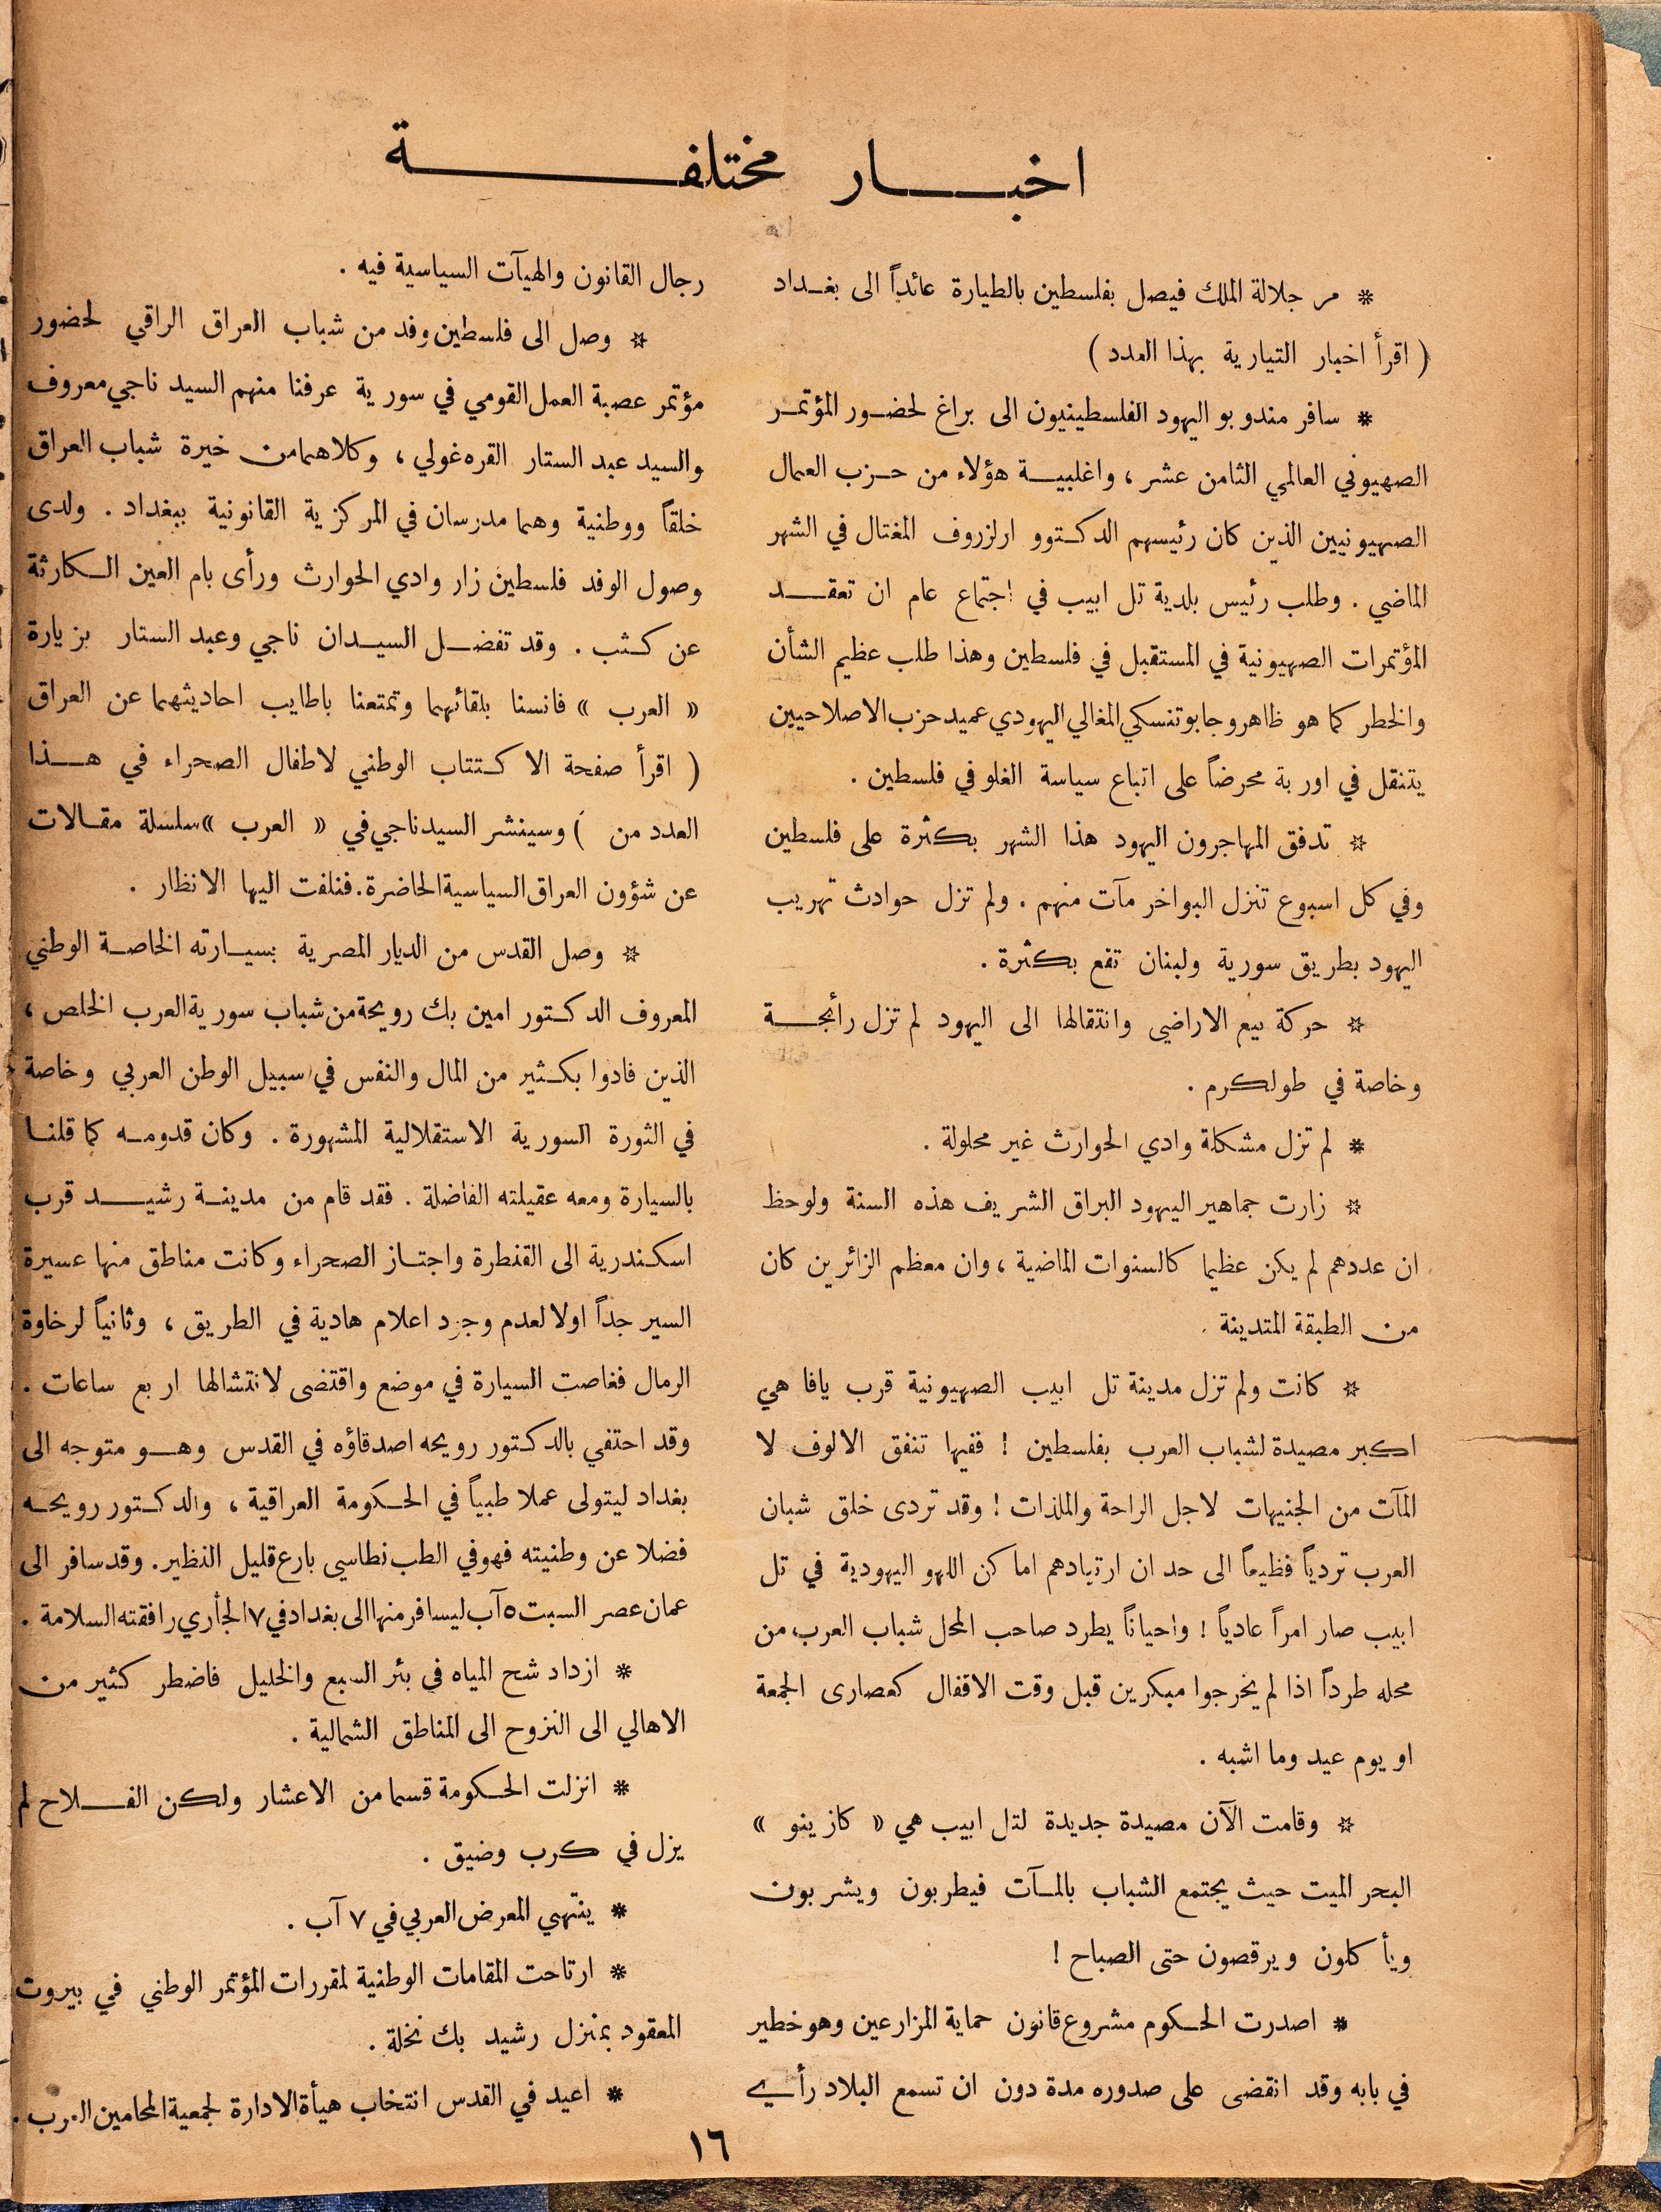 اخبار مختلفة
* مر جلالة الملك فيصل بفلسطين بالطيارة عائداً الى بغداد
( اقرأ اخبار التيارية بهذا العدد )
* سافر مندوبو اليهود الفلسطينيون الى براغ لحضور المؤتمر
الصهيوني العالمي الثامن عشر ، واغلبية هؤلاء من حزب العمال
الصهيونيين الذين كان رئيسهم الدكتوو ارلزروف المغتال في الشهر
الماضي . وطلب رئيس بلدية تل ابيب في اجتماع عام ان تعقد
المؤتمرات الصهيونية في المستقبل في فلسطين وهذا طلب عظيم الشأن
والخطر كما هو ظاهر وجابوتنسكي المغالي اليهودي عميد حزب الاصلاحيين
يتنقل في اوربة محرضاً على اتباع سياسة الغلو في فلسطين .
* تدفق المهاجرون اليهود هذا الشهر بكثرة على فلسطين
وفي كل اسبوع تنزل البواخر مآت منهم . ولم تزل حوادث تهريب
اليهود بطريق سورية ولبنان تقع بكثرة .
* حركة بيع الاراضي وانتقالها الى اليهود لم تزل رائجة
وخاصة في طولكرم .
* لم تزل مشكلة وادي الحوارث غير محلولة .
* زارت جماهير اليهود البراق الشريف هذه السنة ولوحظ
ان عددهم لم يكن عظيما كالسنوات الماضية ، وان معظم الزائرين كان
من الطبقة المتدينة .
* كانت ولم تزل مدينة تل ابيب الصهيونية قرب يافا هي
اكبر مصيدة لشباب العرب بفلسطين ! ففيها تنفق الالوف لا
المآت من الجنيهات لاجل الراحة والملذات ! وقد تردى خلق شبان
العرب تردياً فظيعاً الى حد ان ارتيادهم اماكن اللهو اليهودية في تل
ابيب صار امراً عادياً ! واحياناً يطرد صاحب المحل شباب العرب من
محله طرداً اذا لم يخرجوا مبكرين قبل وقت الاقفال كعصارى الجمعة
او يوم عيد وما اشبه .
* وقامت الآن مصيدة جديدة لتل ابيب هي « كازينو »
البحر الميت حيث يجتمع الشباب بالمآت فيطربون ويشربون
ويأكلون ويرقصون حتى الصباح !
* اصدرت الحكوم مشروع قانون حماية المزارعين وهو خطير
في بابه وقد انقضى على صدوره مدة دون ان تسمع البلاد رأي
رجال القانون والهيآت السياسية فيه .
* وصل الى فلسطين وفد من شباب العراق الراقي لحضور
مؤتمر عصبة العمل القومي في سورية عرفنا منهم السيد ناجي معروف
والسيد عبد الستار القره غولي ، وكلاهما من خيرة شباب العراق
خلقاً ووطنية وهما مدرسان في المركزية القانونية ببغداد . ولدى
وصول الوفد فلسطين زار وادي الحوارث ورأى بام العين الكارثة
عن كثب . وقد تفضل السيدان ناجي وعبد الستار بزيارة
« العرب » فانسنا بلقائهما وتمتعنا باطايب احاديثهما عن العراق
( اقرأ صفحة الاكتتاب الوطني لاطفال الصحراء في هذا
العدد من ) وسينشر السيد ناجي في « العرب » سلسلة مقالات
عن شؤون العراق السياسية الحاضرة. فنلفت اليها الانظار .
* وصل القدس من الديار المصرية بسيارته الخاصة الوطني
المعروف الدكتور امين بك رويحة من شباب سورية العرب الخلص ،
الذين فادوا بكثير من المال والنفس في سبيل الوطن العربي وخاصة
في الثورة السورية الاستقلالية المشهورة . وكان قدومه كما قلنا
بالسيارة ومعه عقيلته الفاضلة . فقد قام من مدينة رشيد قرب
اسكندرية الى القنطرة واجتاز الصحراء وكانت مناطق منها عسيرة
السير جداً اولا لعدم وجود اعلام هادية في الطريق ، وثانياً لرخاوة
الرمال فغاصت السيارة في موضع واقتضى لانتشالها اربع ساعات .
وقد احتفي بالدكتور رويحه اصدقاؤه في القدس وهو متوجه الى
بغداد ليتولى عملا طبياً في الحكومة العراقية ، والدكتور رويحه
فضلا عن وطنيته فهو في الطب نطاسي بارع قليل النظير. وقد سافر الى
عمان عصر السبت ٥ آب ليسافر منها الى بغداد في ٧ الجاري رافقته السلامة .
* ازداد شح المياه في بئر السبع والخليل فاضطر كثير من
الاهالي الى النزوح الى المناطق الشمالية .
* انزلت الحكومة قسما من الاعشار ولكن الفلاح لم
يزل في كرب وضيق .
* ينتهي المعرض العربي في ٧ آب .
* ارتاحت المقامات الوطنية لمقررات المؤتمر الوطني في بيروت
المعقود بمنزل رشيد بك نخلة .
* اعيد في القدس انتخاب هيأة الادارة لجمعية المحامين العرب .
١٦